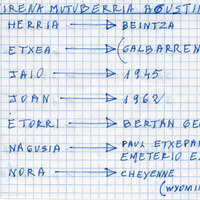 IRENA MUTUBERRIA AGUSTIN
HERRIA → BEINTZA
ETXEA → (GALBARREN
JAIO → 1945
JOAN → 1962
ETORRI → BERTAN GE
NAGUSIA → PAUL ETXEPA
EMETERIO E
NORA → CHEYENNE
(WYOMIN